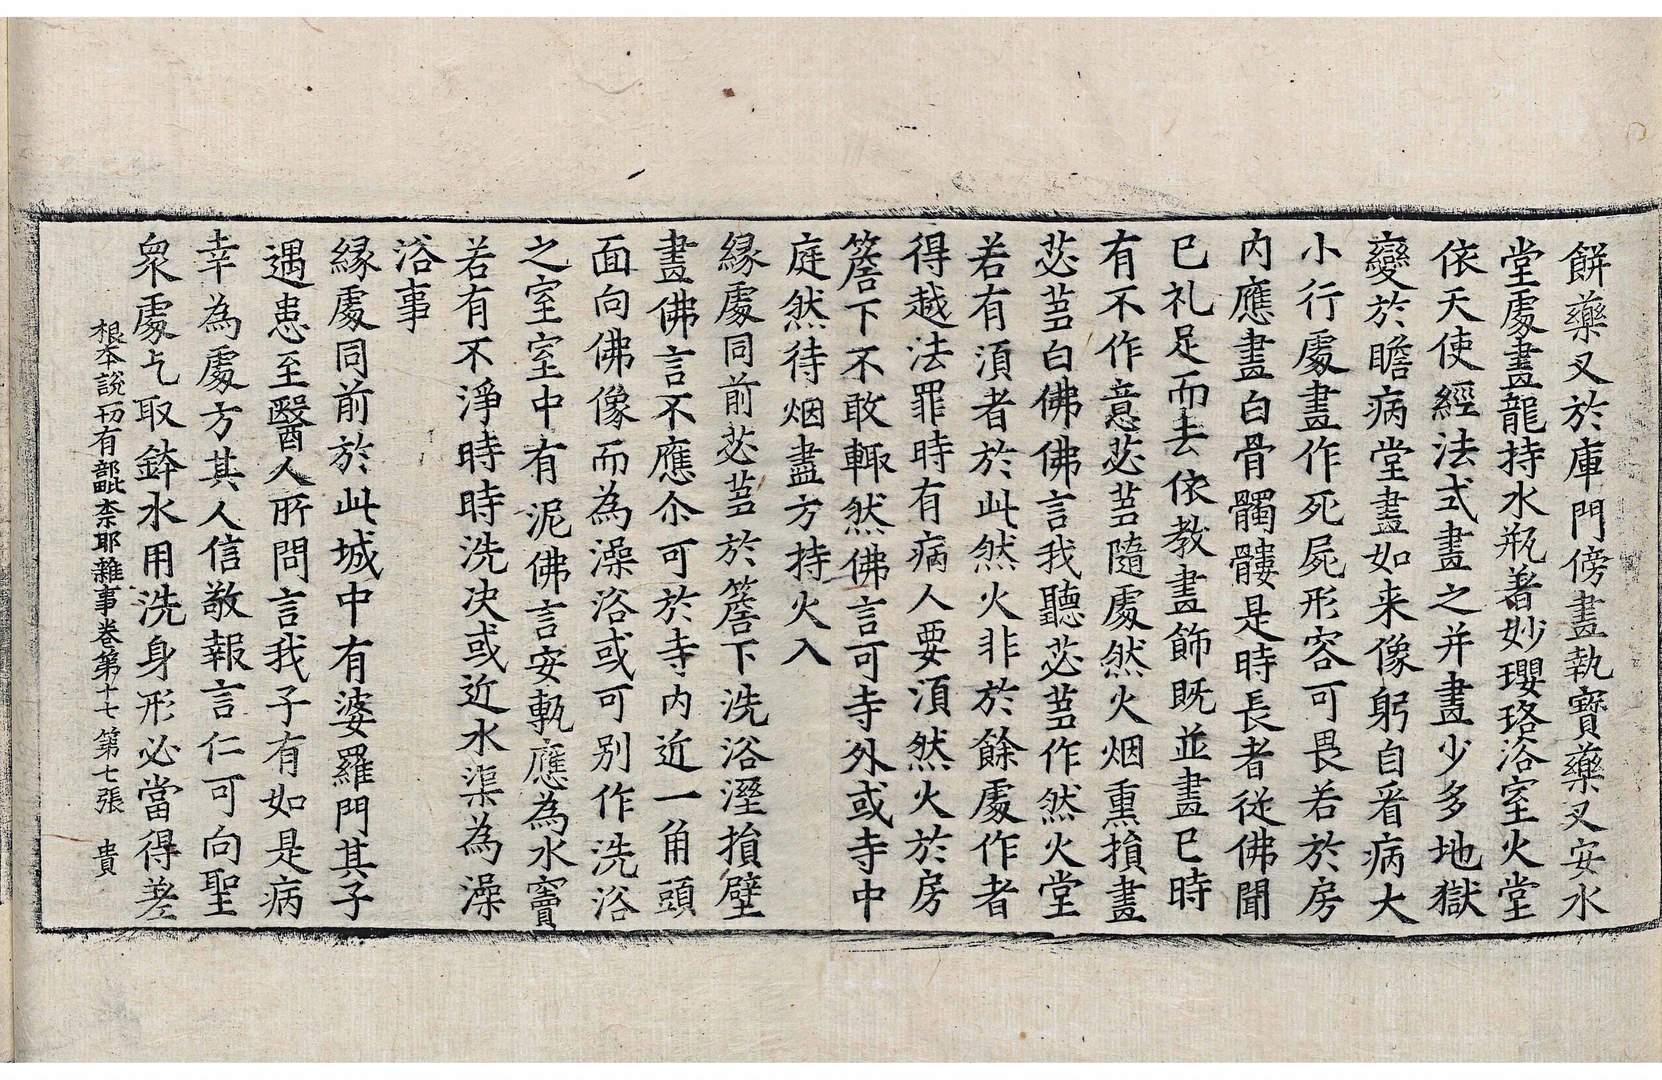 餅藥叉於庫門傍畫執寶藥叉安水
堂處畫龍持水瓶著妙瓔珞浴室火堂
依天使經法式畫之并畫少多地獄
變於瞻病堂畫如来像躬自看病大
小行處畫作死屍形容可畏若於房
内應畫白骨髑髏是時長者從佛聞
已礼足而去依教畫飾既並畫已時
有不作意苾蒭隨處然火烟熏損畫
苾蒭白佛佛言我聽苾蒭作然火堂
若有湏者於此然火非於餘處作者
得越法罪時有病人要湏然火於房
簷下不敢輙然佛言可寺外或寺中
庭然待烟盡方持火入
縁處同前苾蒭於簷下洗浴溼損壁
畫佛言不應尒可於寺内近一角頭
面向佛像而為澡浴或可别作洗浴
之室室中有泥佛言安甎應為水竇
若有不淨時時洗决或近水渠為澡
浴事
縁處同前於此城中有婆羅門其子
遇患至醫人所問言我子有如是病
幸為處方其人信敬報言仁可向聖
衆處乞取鉢水用洗身形必當得差
根本說一切有部毗柰耶雜事卷第十七 第七張 貴